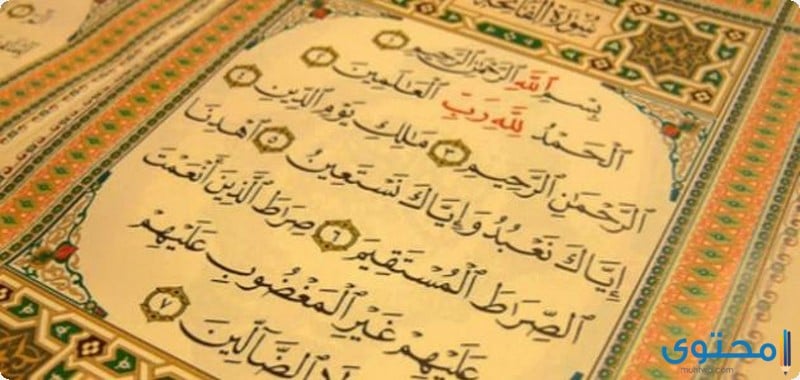 سُورَةُ الفَاتِحَةِ
بِسْمِ ٱللَّهِ ٱلرَّحْمَٰنِ ٱلرَّحِيمِ ١
ٱلْحَمْدُ لِلَّهِ رَبِّ ٱلْعَٰلَمِينَ ٢
ٱلرَّحْمَٰنِ ٱلرَّحِيمِ ٣ مَٰلِكِ يَوْمِ ٱلدِّينِ ٤
إِيَّاكَ نَعْبُدُ وَإِيَّاكَ نَسْتَعِينُ ٥ ٱهْدِنَا
ٱلصِّرَٰطَ ٱلْمُسْتَقِيمَ ٦ صِرَٰطَ ٱلَّذِينَ أَنْعَمْتَ
عَلَيْهِمْ غَيْرِ ٱلْمَغْضُوبِ عَلَيْهِمْ
وَلَا ٱلضَّآلِّينَ ٧
محتوى
muhtwa.com